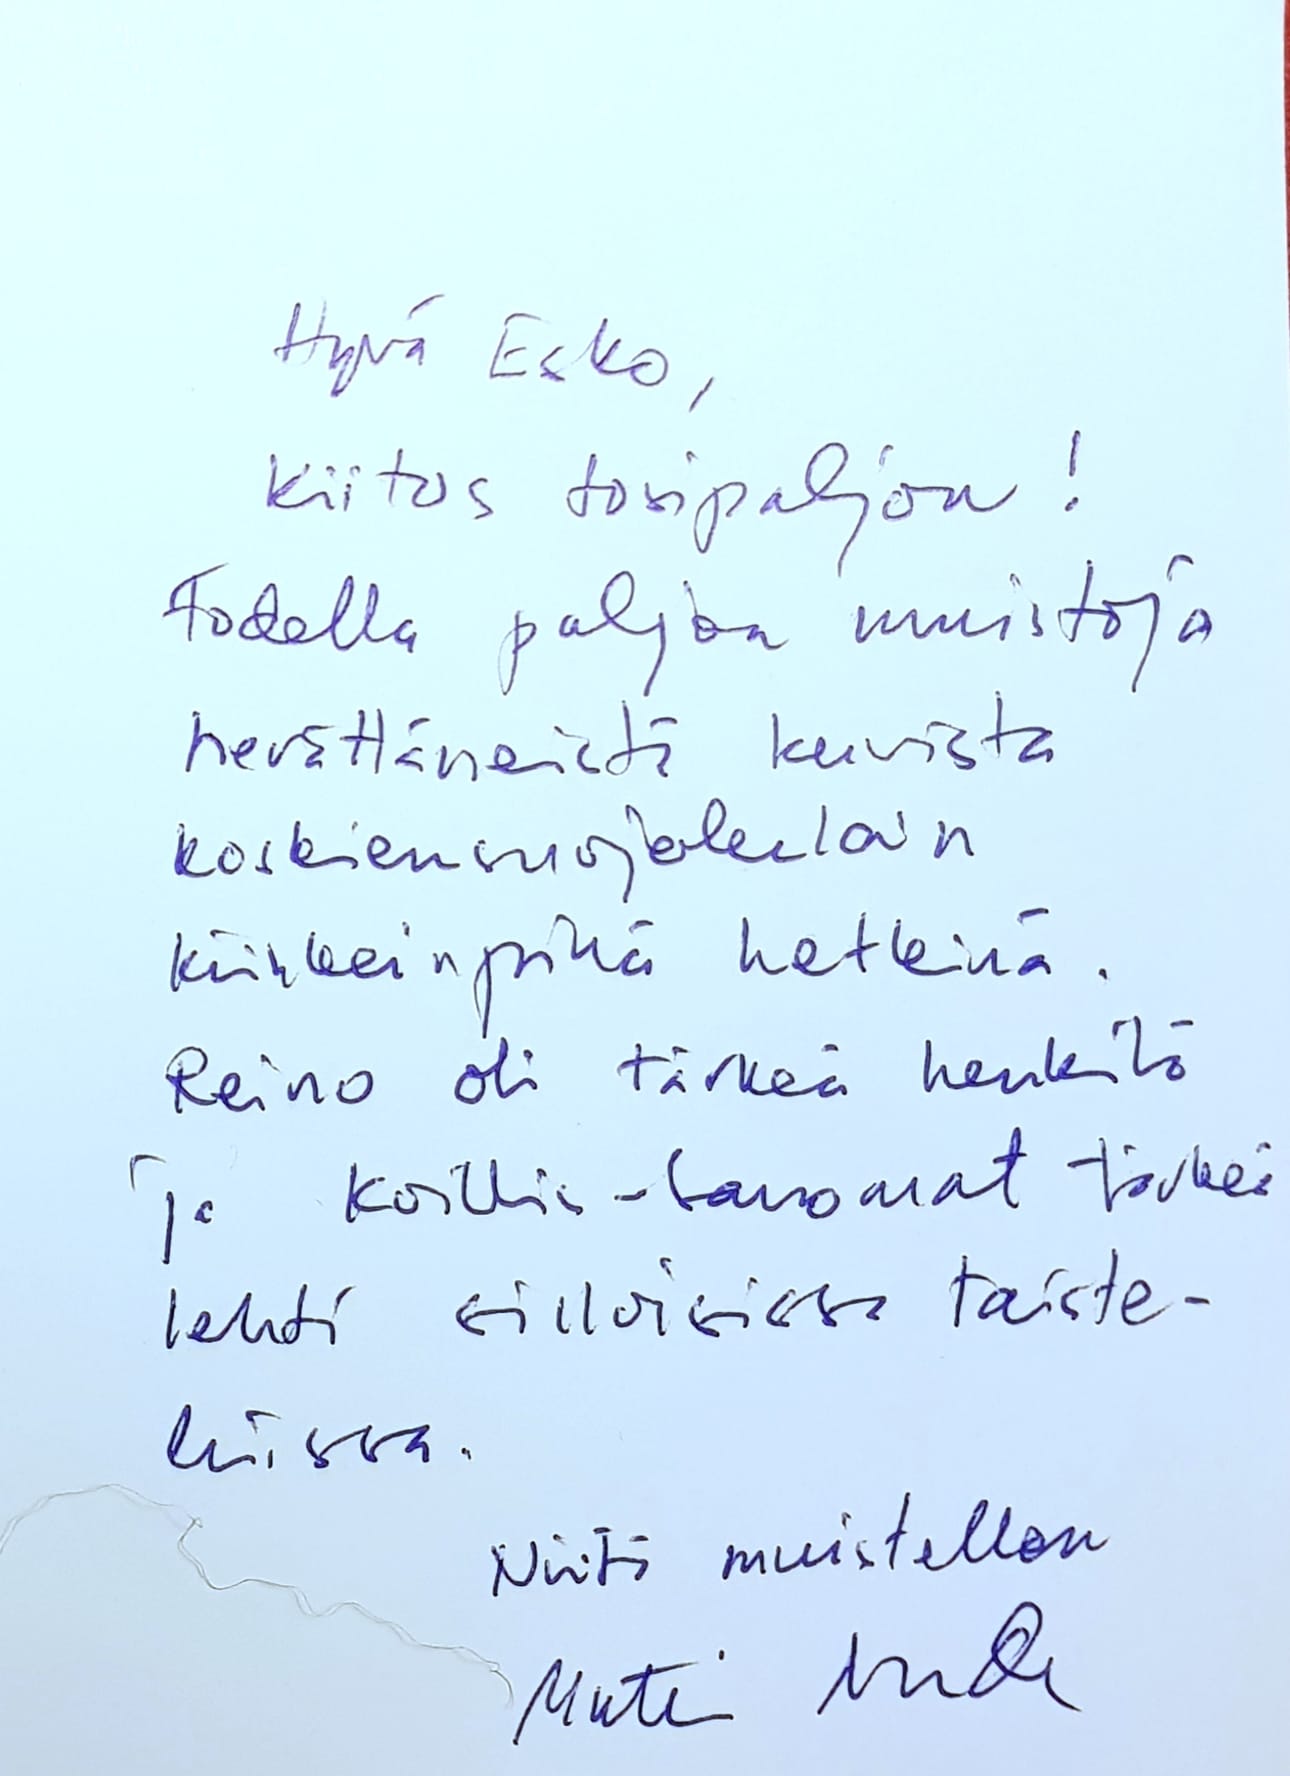 Hyvä Esko,
Kiitos tosipaljon!
Todella paljon muistoja
herättäneistä kuvista
koskiensuojelulain
kiihkeinpinä hetkinä.
Reino oli tärkeä henkilö
ja Koillis-Sanomat tärkeä
lehti silloisissa taiste-
luissa.
Niitä muistellen